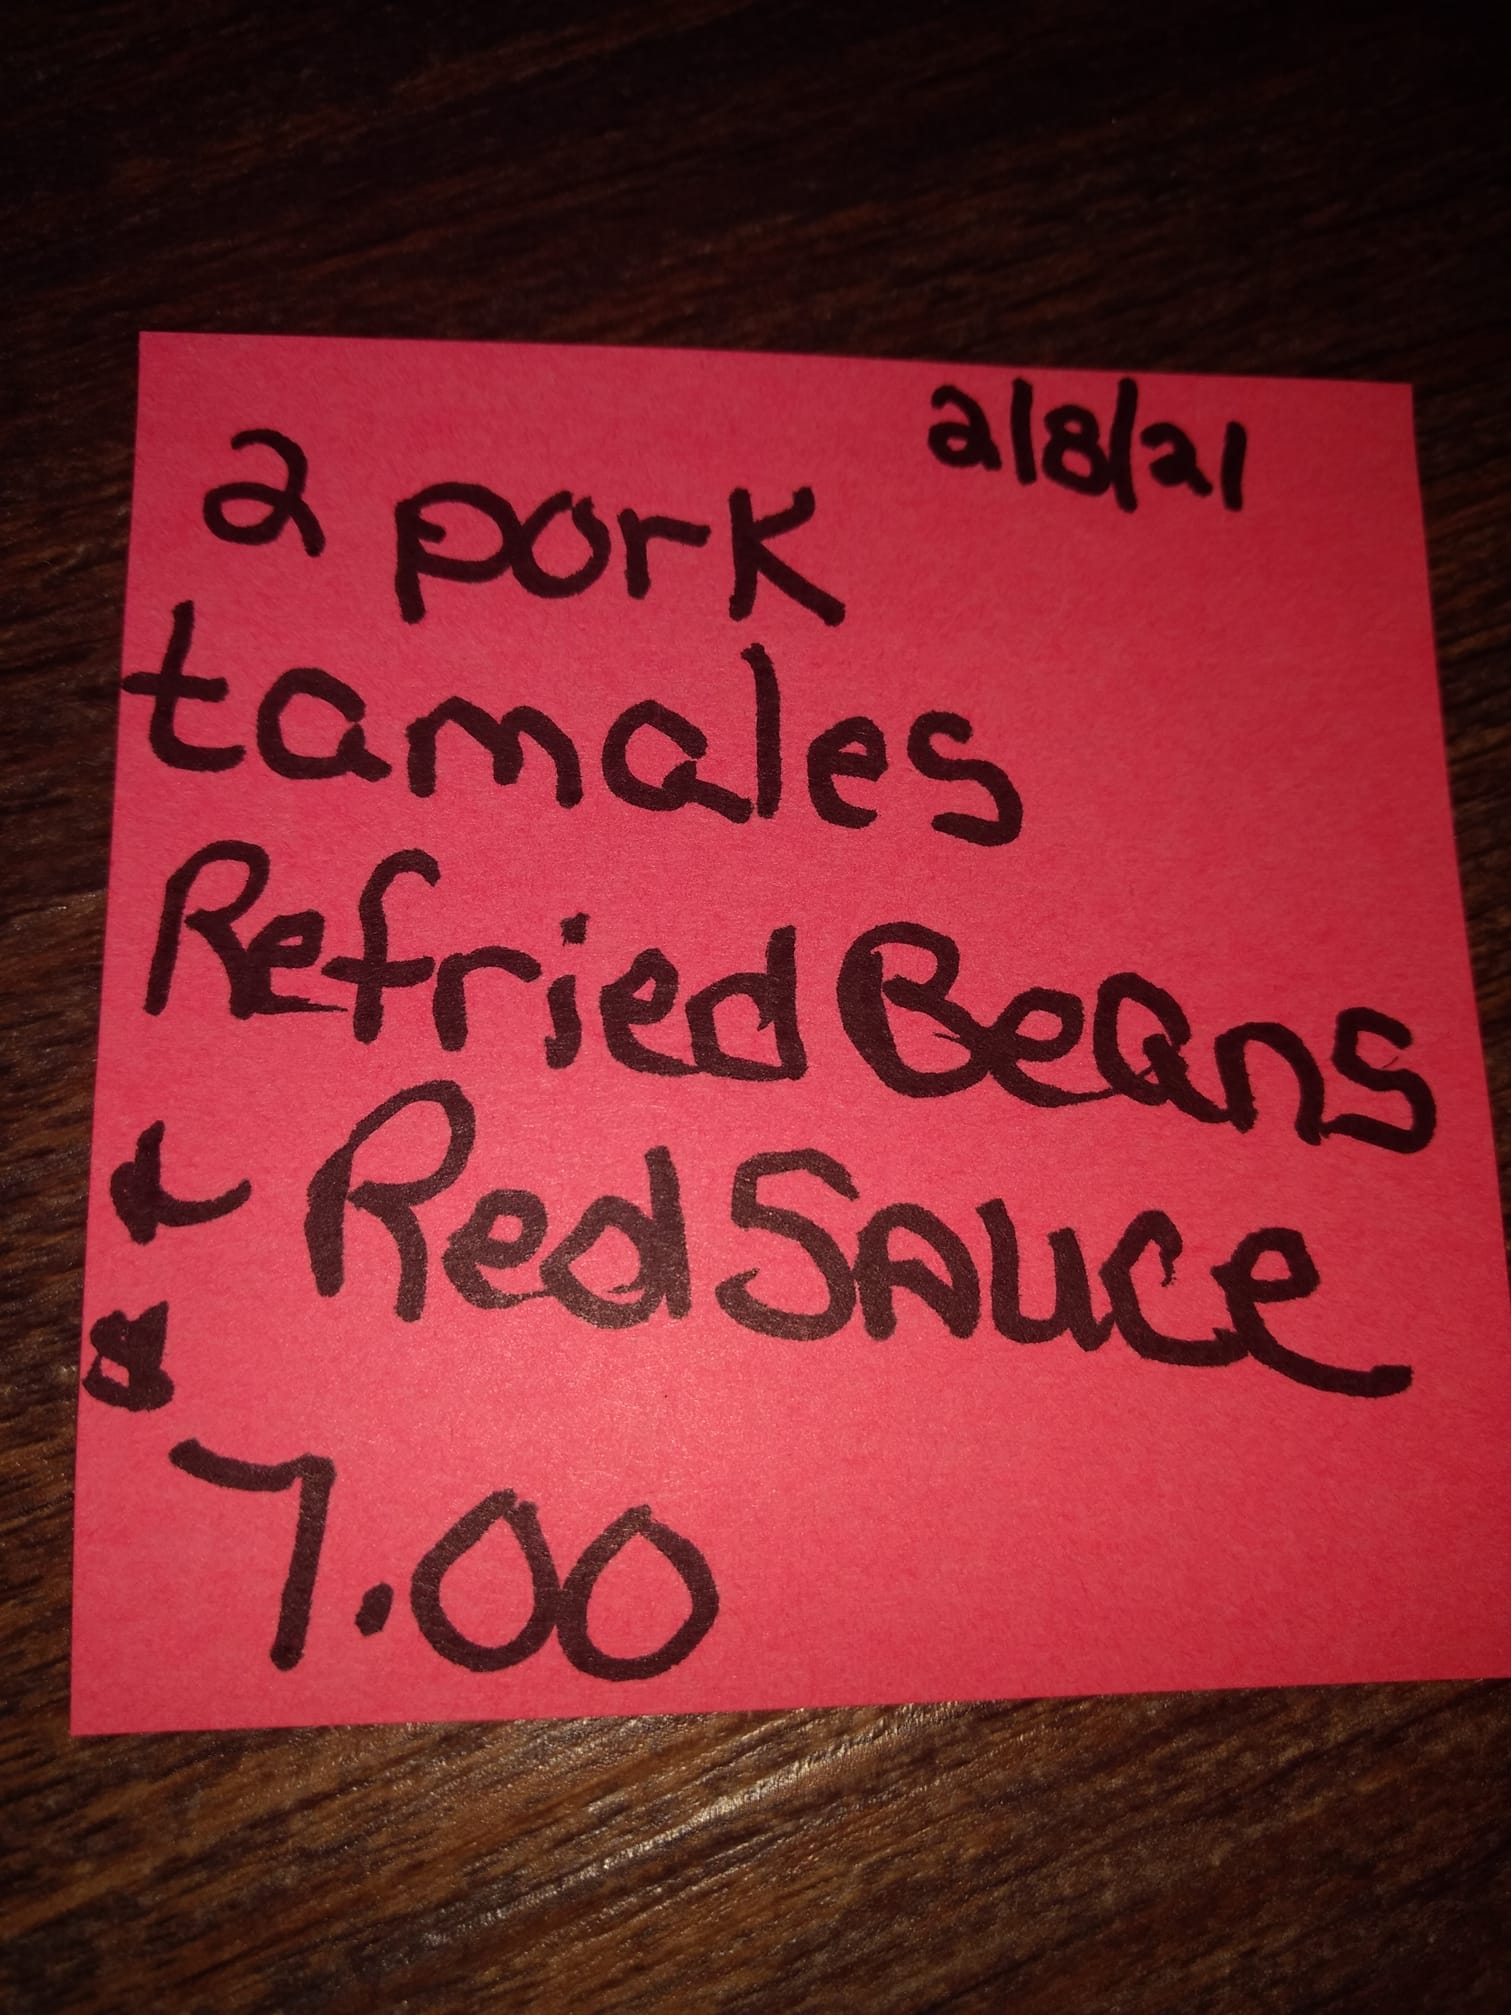 2/8/21
2 pork
tamales
Refried Beans
& Red Sauce
7.00